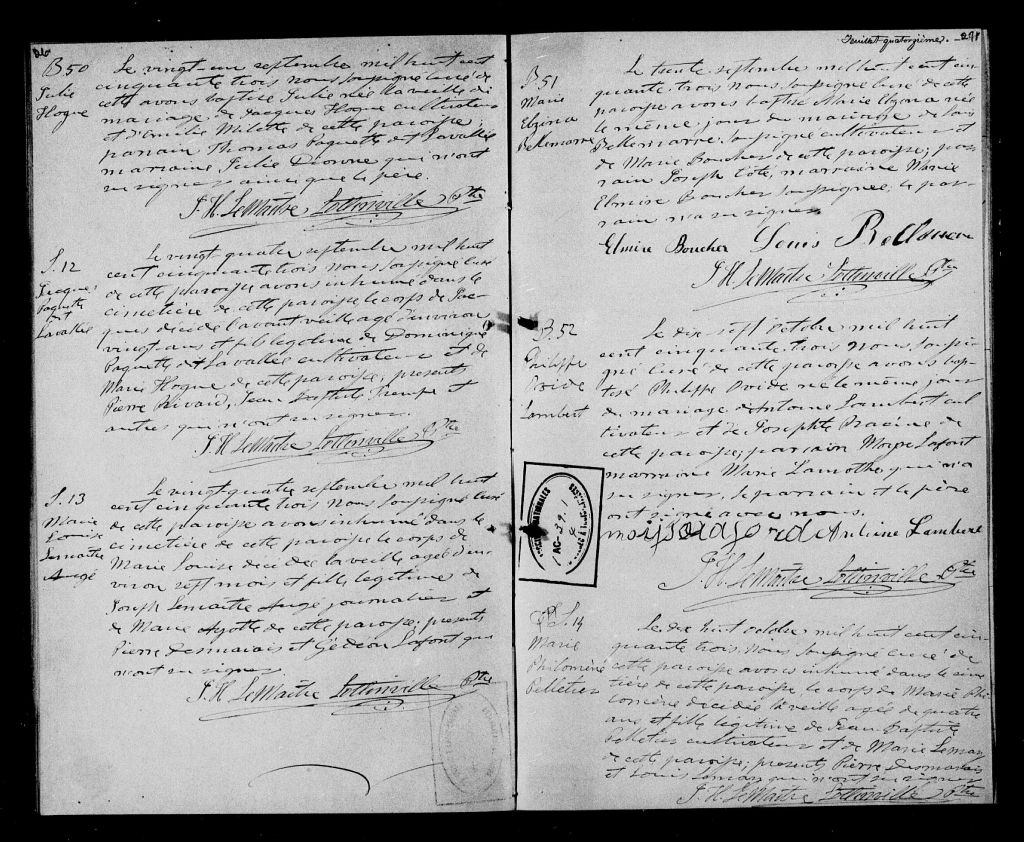 B 50
Julie
Hogue
Le vingt un septembre mil huit cent
cinquante trois nous soussigné curé de
cette avons baptisé Julie née la veille du
mariage de Jacques Hogue cultivateur
et d'Emilie Milette de cette paroisse;
parrain Thomas Paquette dit Lavallé
marraine Julie Dionne qui n'ont
su signer ainsi que le père.
J. H. LeMaitre Lottinville Ptre
S. 12
Jacques
Paquette
dit
Lavallée
Le vingt quatre septembre mil huit
cent cinquante trois nous soussigné curé
de cette paroisse avons inhumé dans le
cimetière de cette paroisse le corps de Jac-
ques décédé l'avant veille agé d'environ
vingt ans et fils légitime de Dominique
Paquette dit Lavallée cultivateur et de
Marie Hogue de cette paroisse; présents
Pierre Rivard, Jean Baptiste et
autres qui n'ont su signer.
J. H. LeMaitre Lottinville Ptre
S. 13
Marie
Louise
Lemaitre
Augé
Le vingt quatre septembre mil huit
cent cinquante trois nous soussigné curé
de cette paroisse avons inhumé dans le
cimetière de cette paroisse le corps de
Marie Louise décédée la veille agée d'en-
viron sept mois et fille légitime de
Joseph Lemaitre Augé journalier et
de Marie Ayotte de cette paroisse; présents
Pierre Desmarais et Gédéon Lafont qui
n'ont su signer
J. H. LeMaitre Lottinville Ptre
Feuillet quatorzième.
B 51
Marie
Elzéna
Bellemarre
Le trente septembre mil huit cent cin-
quante trois nous soussigné curé de cette
paroisse avons baptisé Marie Elzéna née
le même jour du mariage de Louis
Bellemarre soussigné cultivateur et
de Marie Boucher de cette paroisse; par-
rain Joseph Côté, marraine Marie
Elmire Boucher soussignée, le par-
rain n'a su signer
Elmire Boucher Louis
J. H. LeMaitre Lottinville Ptre
B. 52
Philippe
Ovide
Lambert
Le dix sept octobre mil huit
cent cinquante trois nous soussi-
gné curé de cette paroisse avons bap-
tisé Philippe Ovide né le même jour
du mariage d'Antoine Lambert cul-
tivateur et de Josephte Racine de
cette paroisse, parrain Moyse Lafont
marraine Marie Lamothe, qui n'a
su signer, le parrain et le père
ont signé avec nous.
Antoine Lambert
J. H. LeMaitre Lottinville Ptre
ARCHIVES NATIONALES
AC-39.1
S. 14
Marie
Philomène
Pelletier
Le dix huit octobre mil huit cent cin-
quante trois nous soussigné curé de
cette paroisse avons inhumé dans le cime-
tière de cette paroisse le corps de Marie Phi-
lomène décédée la veille agée de quatre
ans et fille légitime de Jean Baptiste
Pelletier cultivateur et de Marie Lemay
de cette paroisse; présents Pierre Desmarais
et Louis Lemay qui n'ont su signer
J. H. LeMaitre Lottinville Ptre